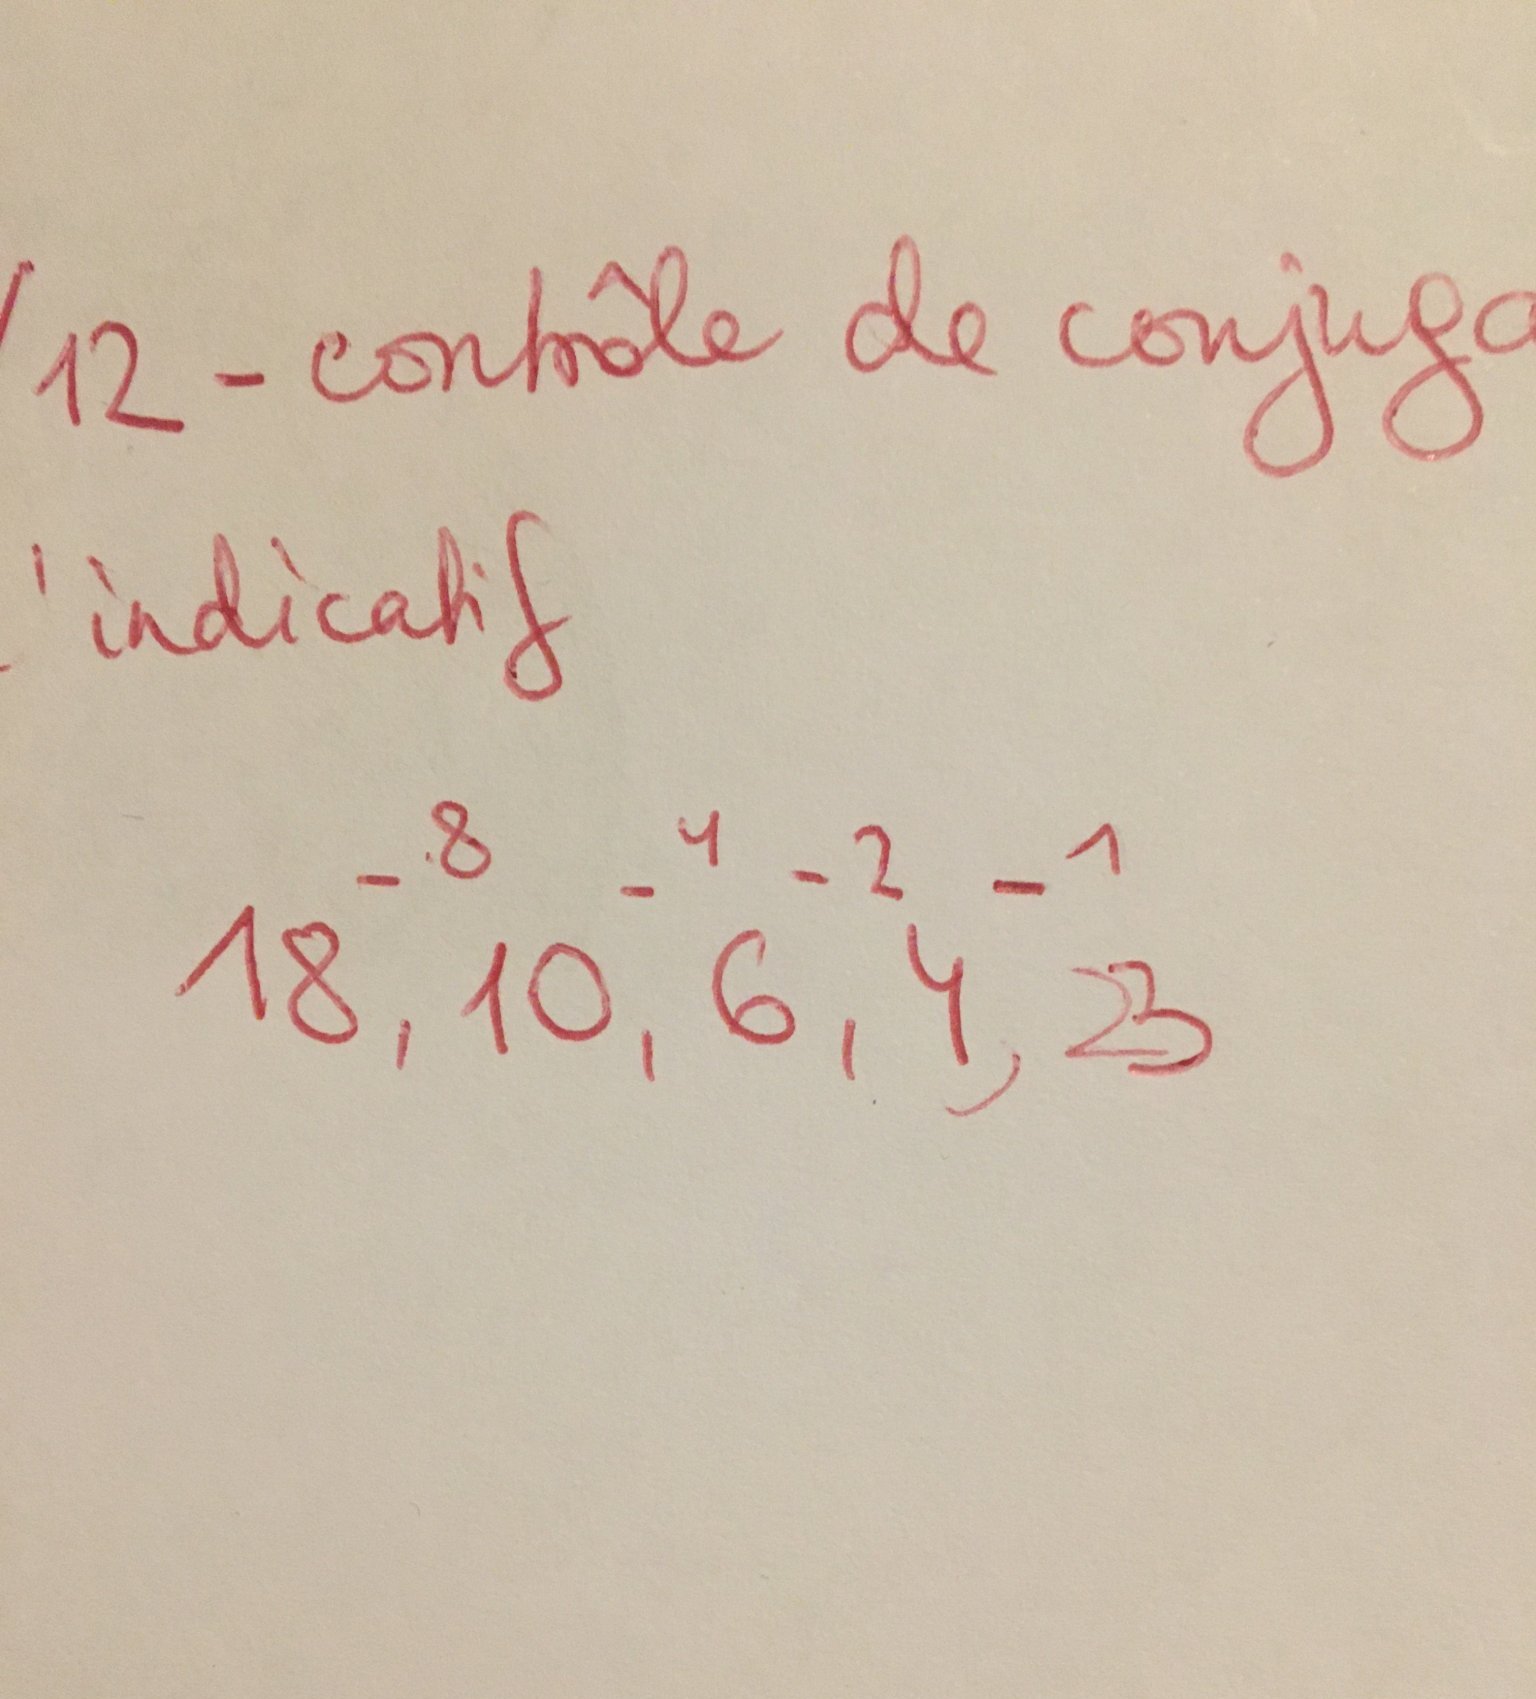 /12 - contrôle de conjuga
l'indicatif
-8 -4 -2 -1
18, 10, 6, 4, 3